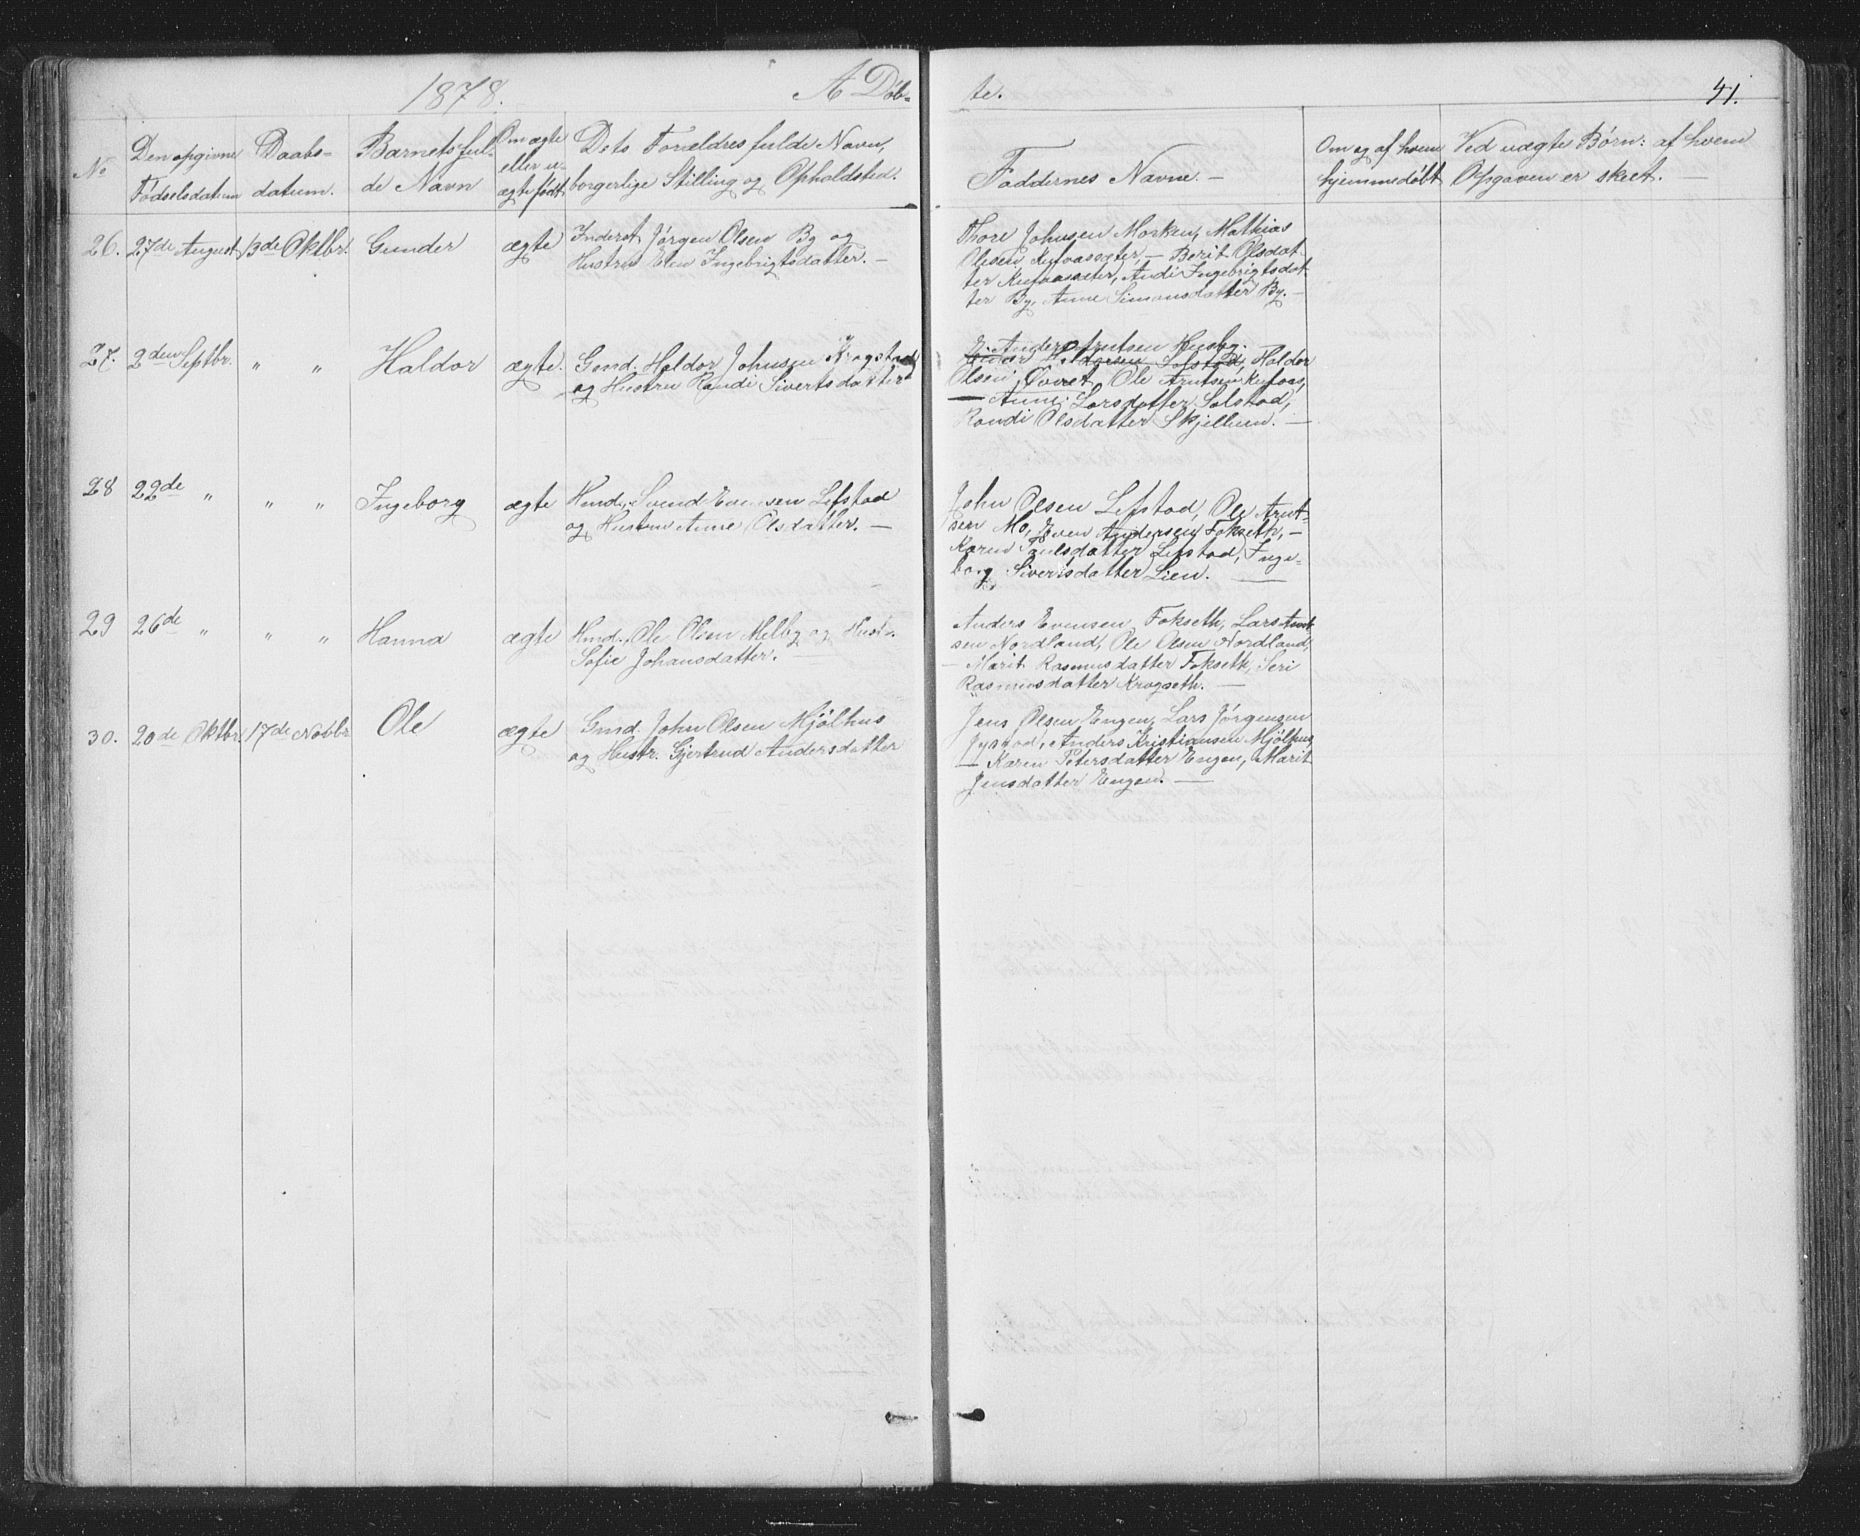 1878. A Døb-
te. 41.
No
Den opgivne
Fødselsdatum
Daabs-
datum.
Barnets ful-
de Navn
Om ægte
eller u-
ægte født
Dets Forældres fulde Navn,
borgerlige Stilling og Opholdsted.
Faddernes Navne.—
Om og af hvem
hjemmedøbt
Ved uægte Børn: af hvem
Opgaven er skeet.—
26. 27de August 13de Oktbr. Gunder ægte
Inderst Jørgen Olsen By og
Hustru Elen Ingebrigtsdatter.—
Thore Johnsen Morken, Mathias
Olesen Kufaassæter,— Berit Olsdat
ter Kufaassæter, Andi Ingebrigtsdat
ter By, Anne Simonsdatter By.—
27. 2den Septbr. " " Haldor ægte.
Gmd. Haldor Johnsen Krogstad
og Hustru Randi Sivertsdatter
Anders Arntsen Husby.
Solstad, Haldor
Olsen Øvret, Ole Arntsen Kufaas,
— Anne Larsdatter Solstad,
Randi Olsdatter Skjellien.—
28 22de " " " Ingeborg ægte
Hmd. Svend Evensen Lefstad
og Hustru Anne Olsdatter.—
John Olsen Lefstad, Ole Arnt-
sen Mo, Even Andersen Fokseth,—
Karen Paulsdatter Lefstad, Inge-
borg Sivertsdatter Lien.—
29 26de " " " Hanna ægte
Hmd. Ole Olsen Melby og Hustr.
Sofie Johansdatter.—
Anders Evensen Fokseth, Lars Arnt
sen Nordland, Ole Olsen Nordland,
— Marit Rasmusdatter Fokseth, Seri
Rasmusdatter Krogseth.—
30. 20de Oktbr. 17de Novbr Ole ægte
Gmd. John Olsen Mjølhus
og Hustr. Gjertrud Andersdatter
Jens Olsen Engen, Lars Jørgensen
Anders Kristiansen Mjølhus
— Karen Petersdatter Engen, Marit
Jensdatter Engen.—